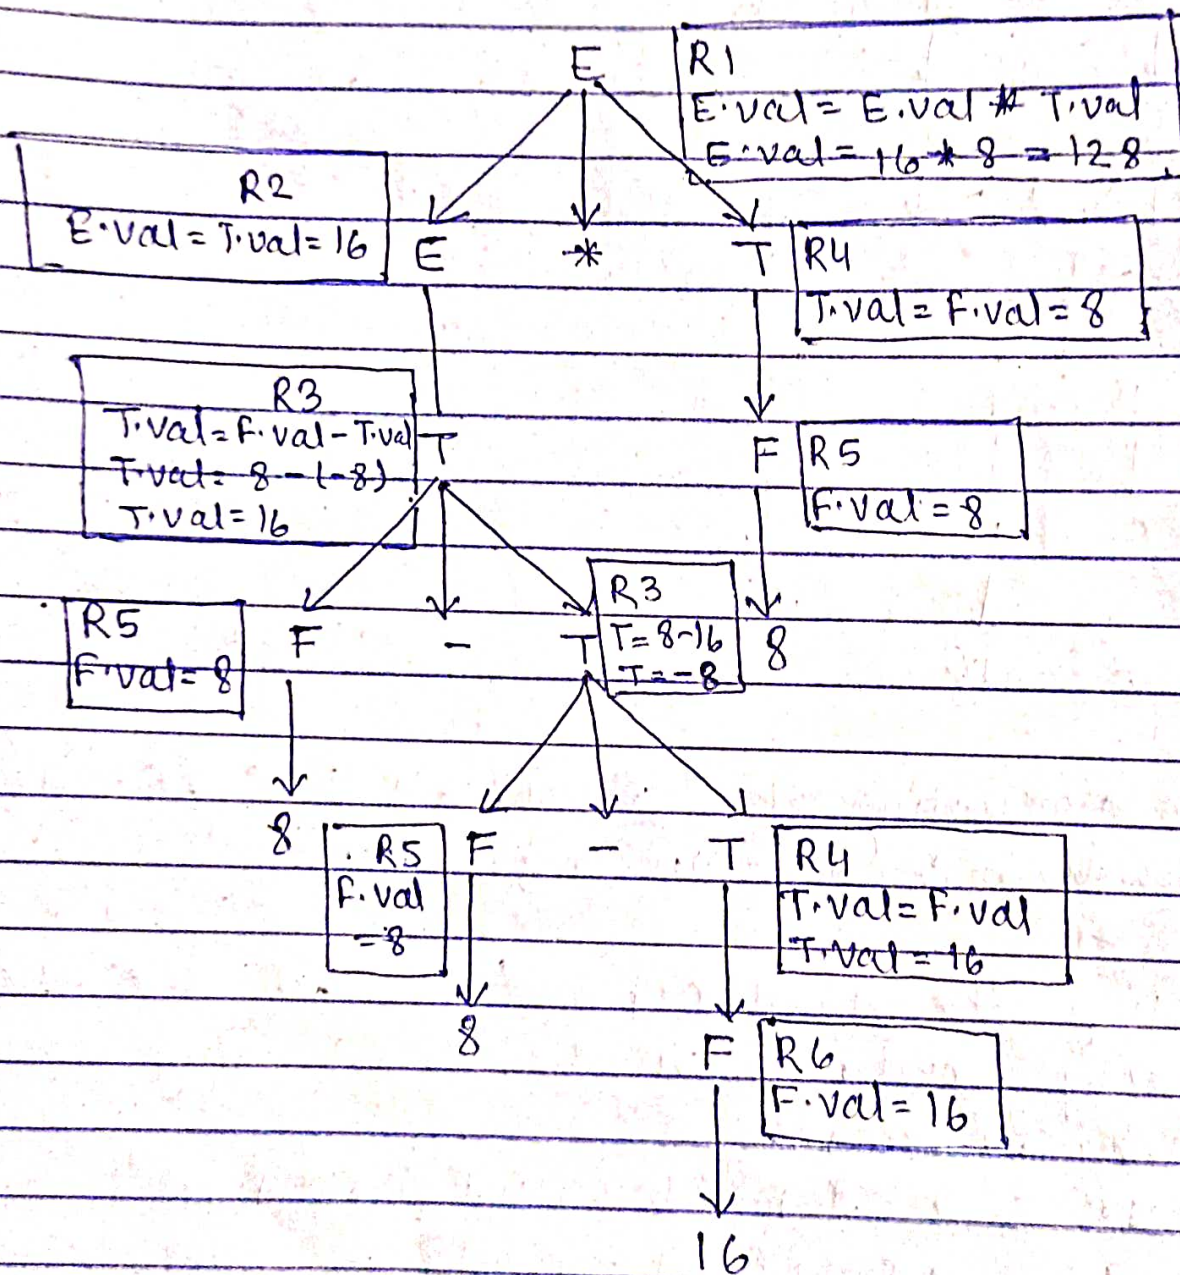 E
R1
E.val = E.val * T.val
E.val = 16 * 8 = 128
R2
E.val = T.val = 16
E * T
R4
T.val = F.val = 8
R3
T.val = F.val - T.val
T.val = 8 - (-8)
T.val = 16
T
F
R5
F.val = 8
R5
F.val = 8
F - T
R3
T = 8-16
T = -8
8
8
R5
F.val
= 8
F - T
R4
T.val = F.val
T.val = 16
8
F
R6
F.val = 16
16